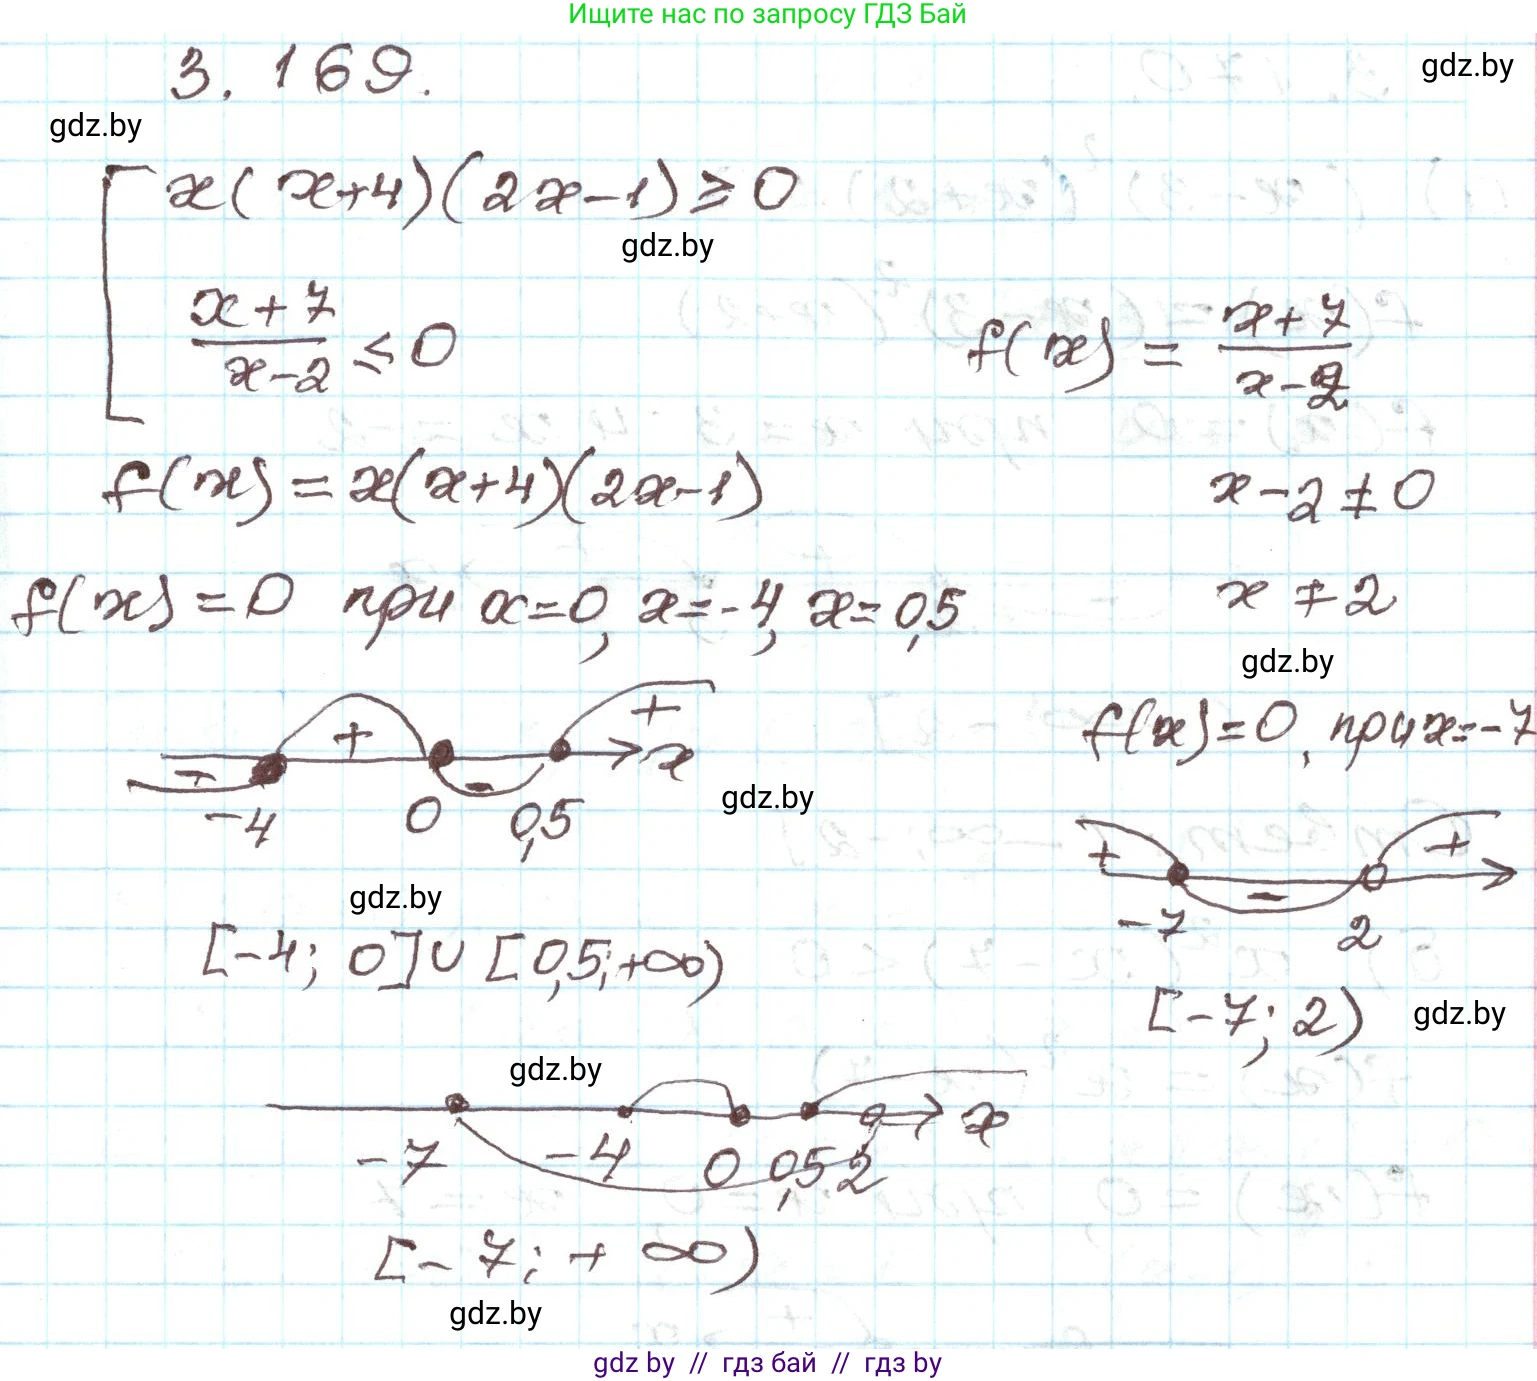 Ищите нас по запросу ГДЗ Бай
3.169.
gdz.by
gdz.by
x(x+4)(2x-1)≥0
gdz.by
x+7
x-2 ≤0
f(x) = x+7
x-2
f(x)=x(x+4)(2x-1)
x-2≠0
f(x)=0 при x=0, x=-4, x=0,5
x≠2
gdz.by
f(x)=0, при x=-7
- + - + x
-4 0 0,5
gdz.by
+ - +
-7 2
gdz.by
[-4; 0]∪[0,5;+∞)
[-7; 2)
gdz.by
gdz.by
x
-7 -4 0 0,5 2
[-7; +∞)
gdz.by
gdz by // гдз бай // gdz by